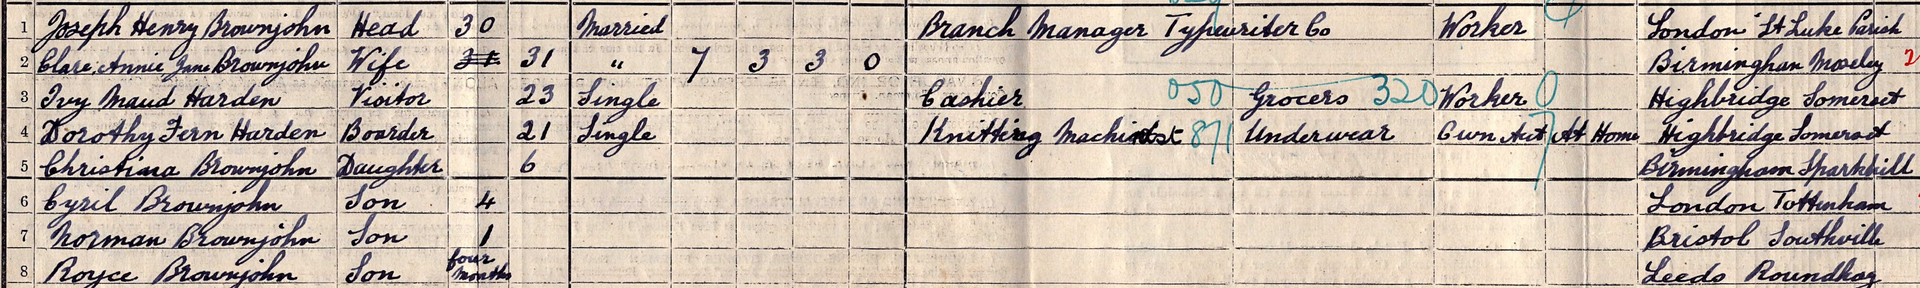 1 Joseph Henry Brownjohn Head 30 Married Branch Manager Typewriter Co Worker London St Luke Parish
2 Clare Annie Jane Brownjohn Wife 31 31 " 7 3 3 0 Birmingham Moseley 2
3 Ivy Maud Harden Visitor 23 Single Cashier 050 Grocers 320 Worker 0 Highbridge Somerset
4 Dorothy Fern Harden Boarder 21 Single Knitting Machinist 871 Underwear Own Act At Home Highbridge Somerset
5 Christina Brownjohn Daughter 6 Birmingham Sparkhill
6 Cyril Brownjohn Son 4 London Tottenham
7 Norman Brownjohn Son 1 Bristol Southville
8 Royce Brownjohn Son four Months Leeds Roundhay